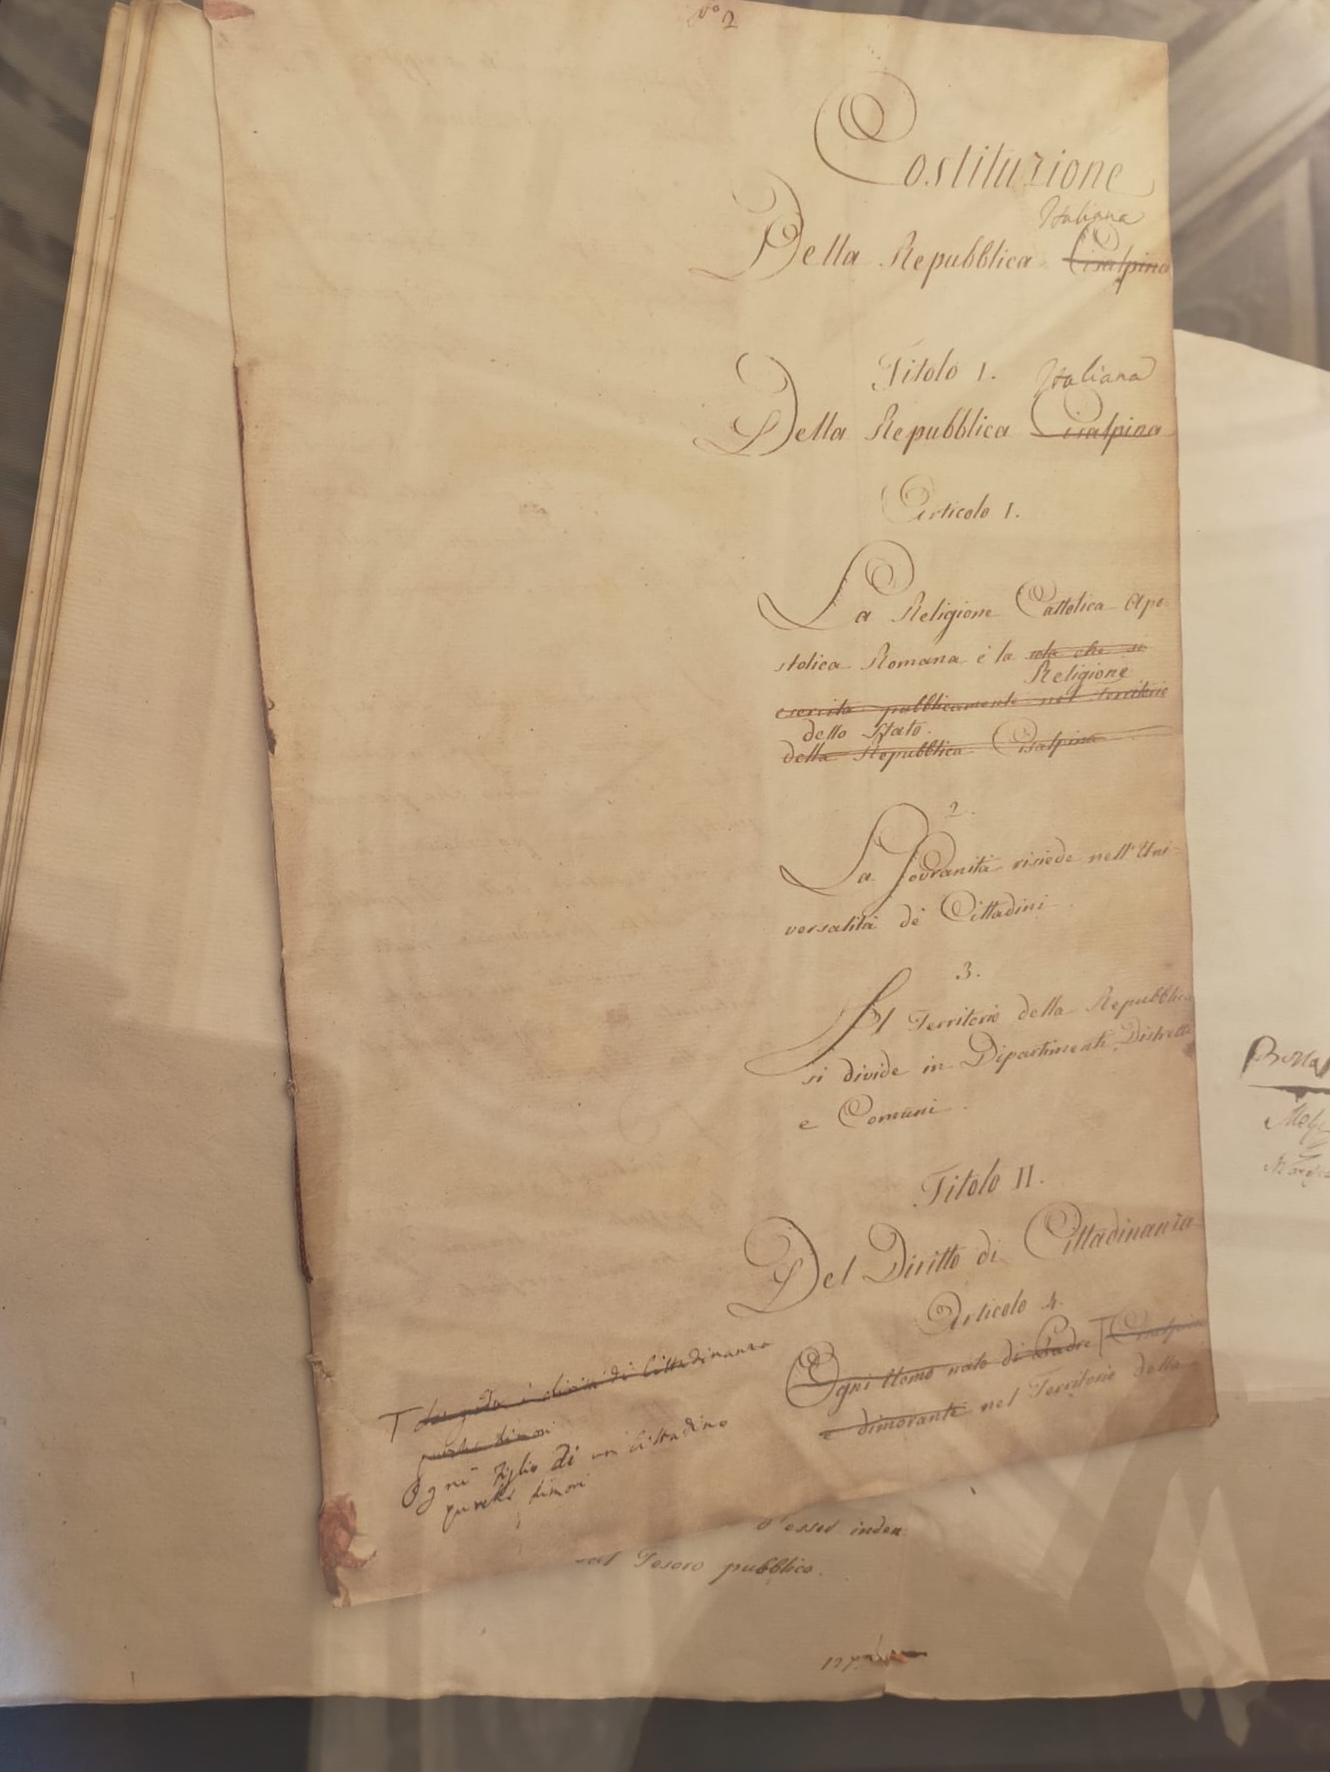 N.° 2
Costituzione
Italiana
Della Repubblica Cisalpina
Titolo I.
Italiana
Della Repubblica Cisalpina
Articolo I.
La Religione Cattolica Apo-
stolica Romana è la sola che si
Religione
esercita pubblicamente nel territorio
dello Stato.
della Repubblica Cisalpina
2.
La Sovranità risiede nell'Uni-
versalità de' Cittadini.
3.
Il Territorio della Repubblica
si divide in Dipartimenti, Distretti
e Comuni.
Titolo II.
Del Diritto di Cittadinanza
Articolo 4.
Ogni Uomo nato di Padre T Cisalpino
e dimorante nel Territorio della
T di Cittadinanza
purchè dimori
Ogni figlio di un Cittadino
purchè dimori
d'esser inden
nel Tesoro pubblico.